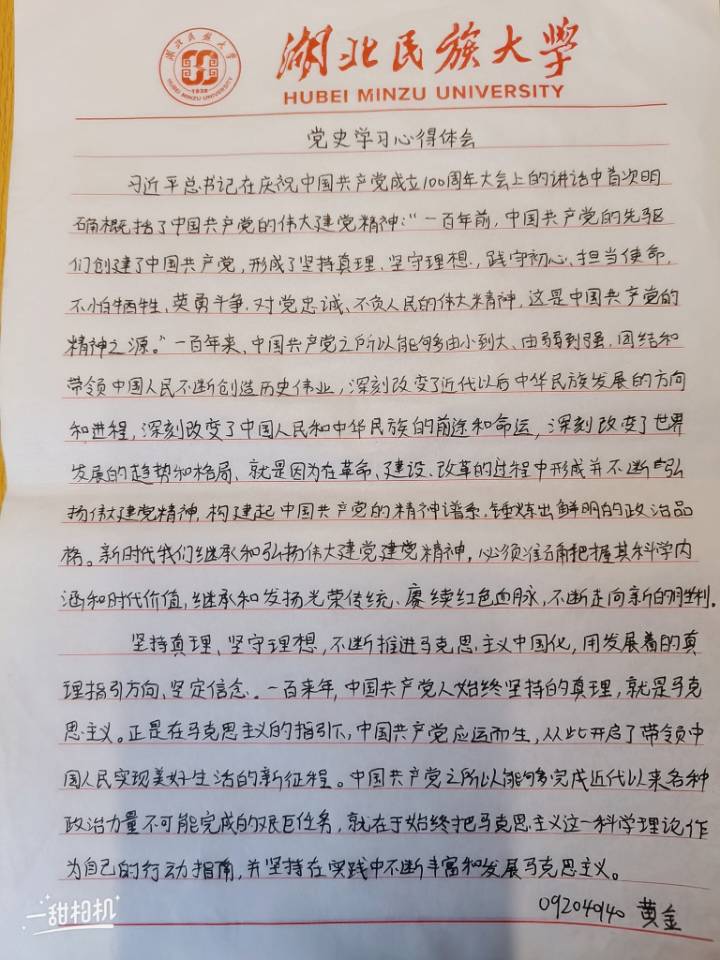 湖北民族大学
1938
湖北民族大学
HUBEI MINZU UNIVERSITY
HUBEI MINZU UNIVERSITY
党史学习心得体会
习近平总书记在庆祝中国共产党成立100周年大会上的讲话中首次明
确概括了中国共产党的伟大建党精神:“一百年前,中国共产党的先驱
们创建了中国共产党,形成了坚持真理、坚守理想,践守初心、担当使命,
不怕牺牲、英勇斗争,对党忠诚、不负人民的伟大精神,这是中国共产党的
精神之源。”一百年来、中国共产党之所以能够由小到大、由弱到强,团结和
带领中国人民不断创造历史伟业,深刻改变了近代以后中华民族发展的方向
和进程,深刻改变了中国人民和中华民族的前途和命运,深刻改变了世界
发展的趋势和格局、就是因为在革命、建设、改革的过程中形成并不断弘
扬伟大建党精神,构建起中国共产党的精神谱系,锤炼出鲜明的政治品
格。新时代我们继承和弘扬伟大建党建党精神,必须准确把握其科学内
涵和时代价值,继承和发扬光荣传统、赓续红色血脉,不断走向新的胜利。
坚持真理、坚守理想,不断推进马克思主义中国化,用发展着的真
理指引方向、坚定信念。一百来年,中国共产党人始终坚持的真理,就是马克
思主义。正是在马克思主义的指引下,中国共产党应运而生,从此开启了带领中
国人民实现美好生活的新征程。中国共产党之所以能够完成近代以来各种
政治力量不可能完成的艰巨任务,就在于始终把马克思主义这一科学理论作
为自己的行动指南,并坚持在实践中不断丰富和发展马克思主义。
09204940 黄金
一甜相机